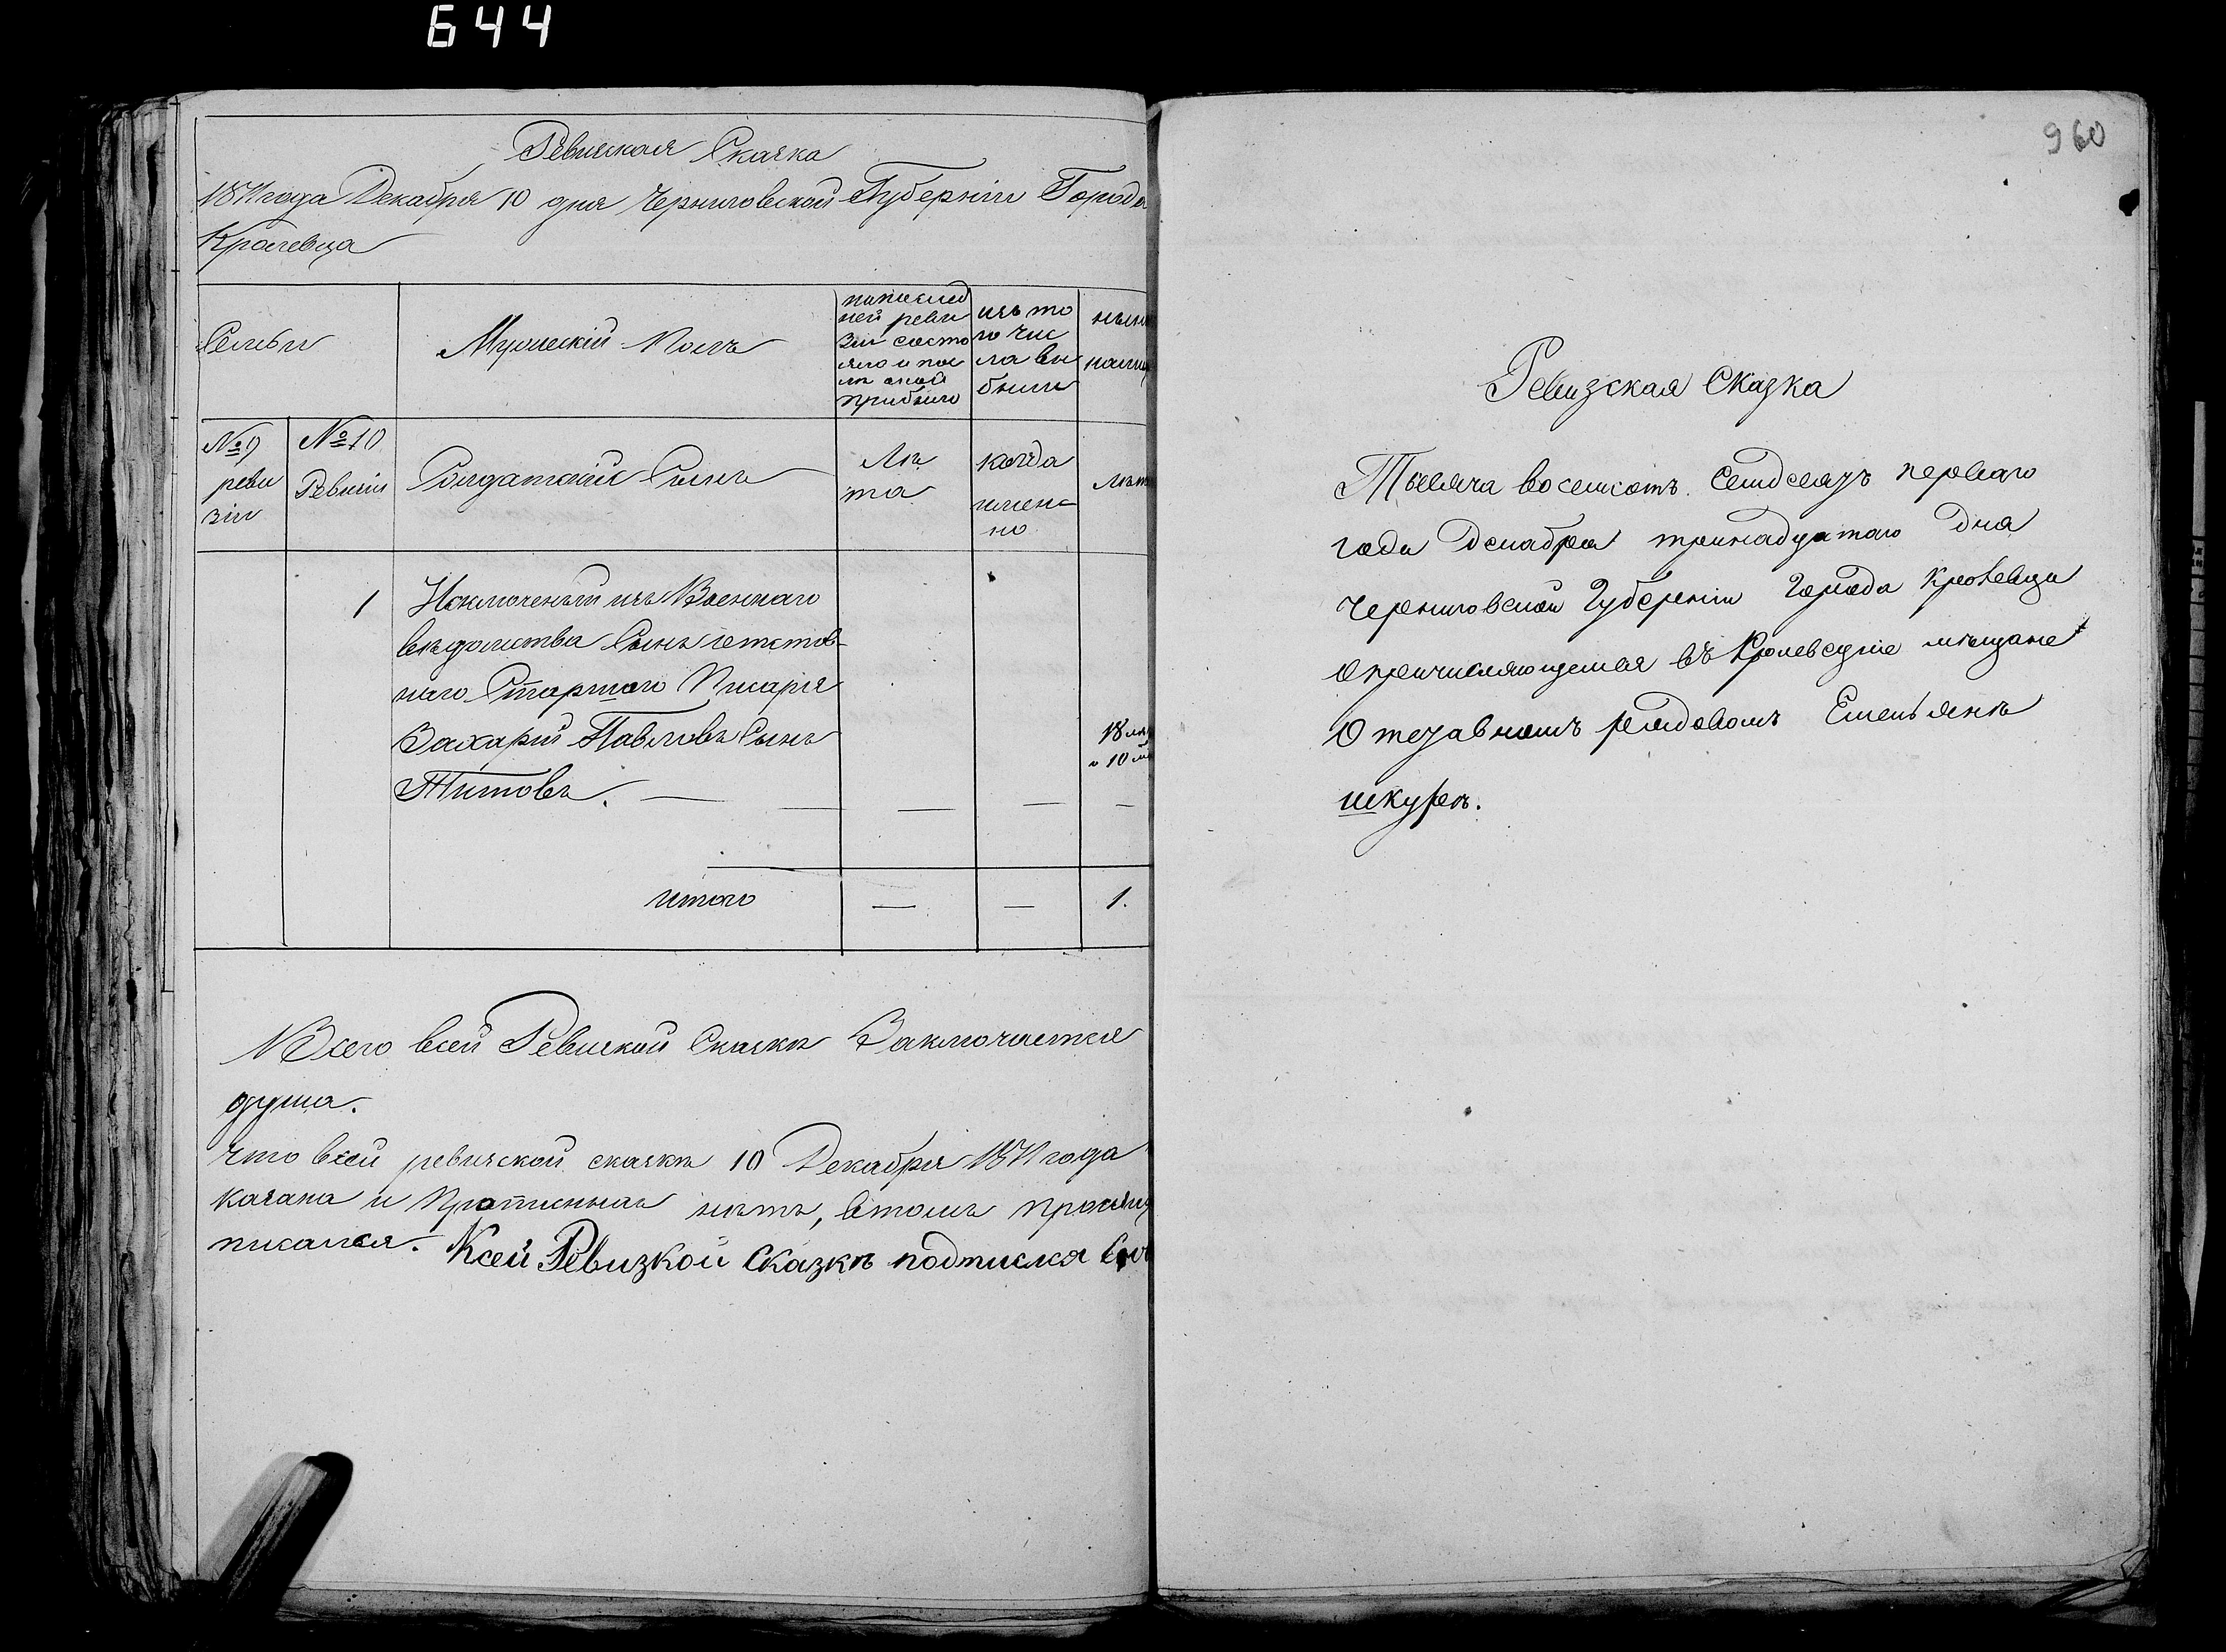 644
Ревизская Сказка
1871 года Декабря 10 дня Черниговской Губерніи Города
Кролевца
Семьи
Мужескій Полъ
попослед
ней реви
зіи состо
яло и пос
лѣ оной
прибыло
изъ то
го чис
ла вы
было
нынѣ
налиц
№ 9
реви
зіи
№ 10
Ревизіи
Солдатскій Сынъ
Лѣ
та
когда
имен-
но
Лѣт
1
Исключеный изъ Военнаго
вѣдомства Сынъ отстав-
наго Старшаго Писаря
Захарій Павловъ Сынъ
Титовъ. —
18 лѣ
и 10 м
— — — —
итого — — 1.
Всего всей Ревиской Сказкѣ Заключается
душа.
что всей ревизской сказкѣ 10 Декабря 1871 года
казана и Прописныхъ нѣтъ, втомъ
писался. Ксей Ревизкой Сказкѣ подписися
960
Ревизская Сказка
Тысяча восемсотъ семдесязъ перваго
года Декабря тринадцатаго дня
Черниговской Губерніи Города Кролевца
о причисляющемся въ Кролевецкіе мѣщане
Отзавномъ рядовомъ Емельянѣ
шкурѣ.